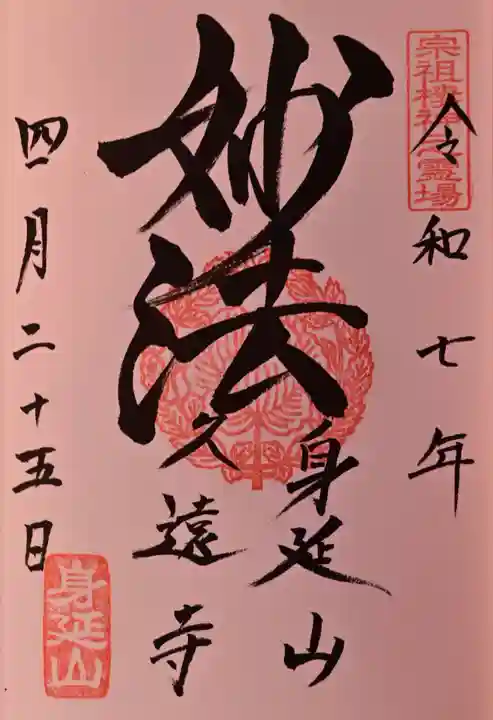 宗祖棲神之霊場
令和七年
妙法
身延山
久遠寺
四月二十五日
身延山